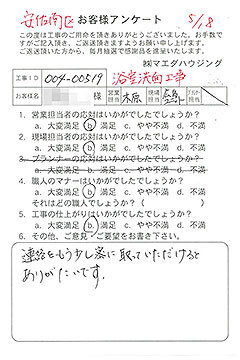 安佐南区 お客様アンケート 5/18
この度は工事のご用命を頂きありがとうございました。お手数で
すがご記入頂き、ご返送頂きますようお願い申し上げます。
ご返送頂いた方から、毎月抽選で感謝品を進呈いたします。
㈱マエダハウジング
工事ID 004-00519 浴室洗面工事
お客様名 様 営業担当 木原 現場担当
1. 営業担当者の応対はいかがでしたでしょうか?
a. 大変満足 b. 満足 c. やや不満 d. 不満
2. 現場担当者の応対はいかがでしたでしょうか?
a. 大変満足 b. 満足 c. やや不満 d. 不満
3. プランナーの応対はいかがでしたでしょうか?
a. 大変満足 b. 満足 c. やや不満 d. 不満
4. 職人のマナーはいかがでしたでしょうか?
a. 大変満足 b. 満足 c. やや不満 d. 不満
それはどの職人でしょうか?( )
5. 工事の仕上がりはいかがでしたでしょうか?
a. 大変満足 b. 満足 c. やや不満 d. 不満
6. その他、ご意見・ご要望をお書き下さい。
連絡をもう少し密に取っていただけると
ありがたいです。